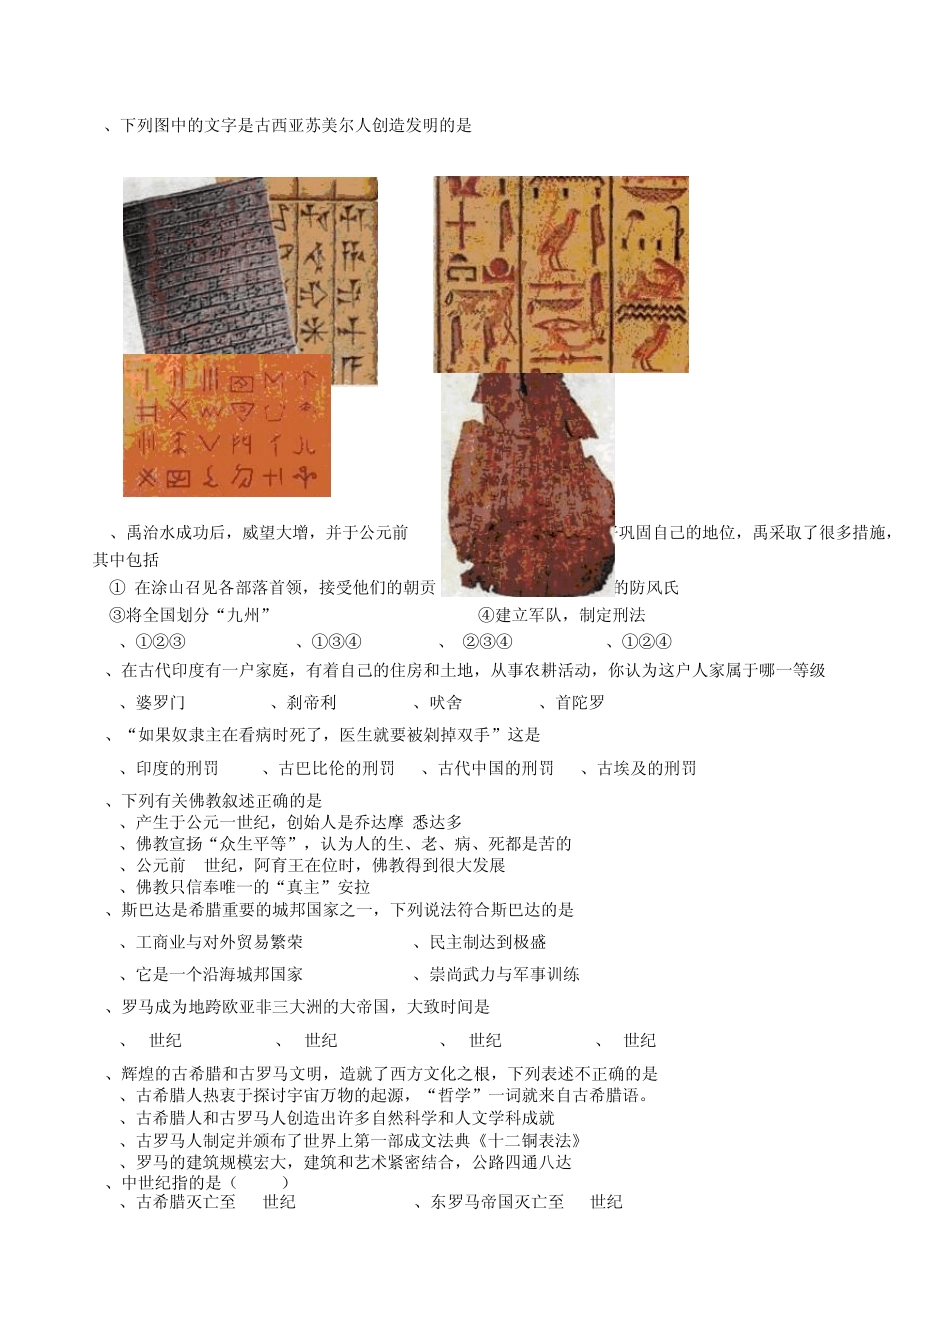 、下列图中的文字是古西亚苏美尔人创造发明的是
、禹治水成功后，威望大增，并于公元前 巩固自己的地位，禹采取了很多措施，
其中包括
① 在涂山召见各部落首领，接受他们的朝贡 的防风氏
③将全国划分“九州” ④建立军队，制定刑法
、①②③ 、①③④ 、 ②③④ 、①②④
、在古代印度有一户家庭，有着自己的住房和土地，从事农耕活动，你认为这户人家属于哪一等级
、婆罗门 、刹帝利 、吠舍 、首陀罗
、“如果奴隶主在看病时死了，医生就要被剁掉双手”这是
、印度的刑罚 、古巴比伦的刑罚 、古代中国的刑罚 、古埃及的刑罚
、下列有关佛教叙述正确的是
、产生于公元一世纪，创始人是乔达摩 悉达多
、佛教宣扬“众生平等”，认为人的生、老、病、死都是苦的
、公元前 世纪，阿育王在位时，佛教得到很大发展
、佛教只信奉唯一的“真主”安拉
、斯巴达是希腊重要的城邦国家之一，下列说法符合斯巴达的是
、工商业与对外贸易繁荣 、民主制达到极盛
、它是一个沿海城邦国家 、崇尚武力与军事训练
、罗马成为地跨欧亚非三大洲的大帝国，大致时间是
、 世纪 、 世纪 、 世纪 、 世纪
、辉煌的古希腊和古罗马文明，造就了西方文化之根，下列表述不正确的是
、古希腊人热衷于探讨宇宙万物的起源，“哲学”一词就来自古希腊语。
、古希腊人和古罗马人创造出许多自然科学和人文学科成就
、古罗马人制定并颁布了世界上第一部成文法典《十二铜表法》
、罗马的建筑规模宏大，建筑和艺术紧密结合，公路四通八达
、中世纪指的是（ ）
、古希腊灭亡至 世纪 、东罗马帝国灭亡至 世纪